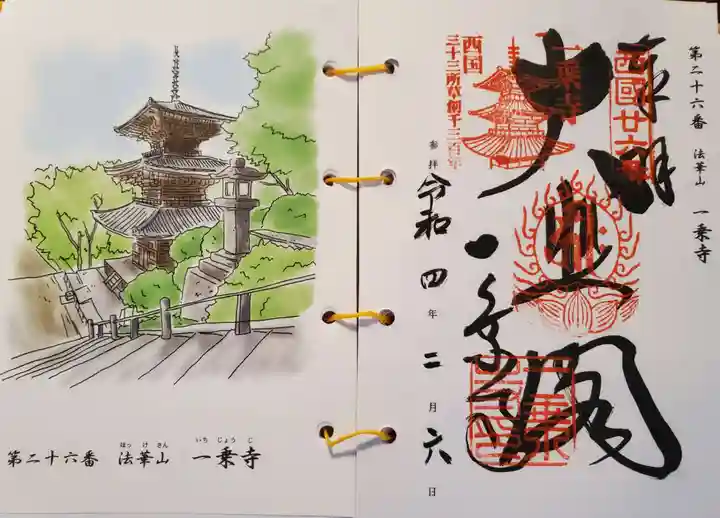 ほっ け さん いち じょう じ
第二十六番 法華山 一乗寺
第二十六番 法華山 一乗寺
奉拝
西國廿六番
大悲閣
一乗寺
一乗寺
西国
三十三所草創千三百年
参拝 令和四年二月六日